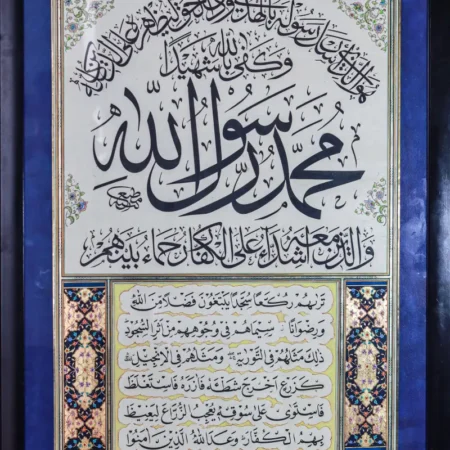 هو الذي ارسل رسوله بالهدى ودين الحق ليظهره على الدين كله
وكفى بالله شهيدا
محمد رسول الله
والذين معه اشداء على الكفار رحماء بينهم
تَرٰيهُمْ رُكَّعًا سُجَّدًا يَبْتَغُونَ فَضْلًا مِنَ اللّٰهِ
وَرِضْوَانًا سِيمَاهُمْ فِى وُجُوهِهِمْ مِنْ اَثَرِ السُّجُودِ
ذٰلِكَ مَثَلُهُمْ فِى التَّوْرٰيةِ وَمَثَلُهُمْ فِى الْاِنْجِيلِ
كَزَرْعٍ اَخْرَجَ شَطْئَهُ فَاٰزَرَهُ فَاسْتَغْلَظَ
فَاسْتَوٰى عَلٰى سُوقِهِ يُعْجِبُ الزُّرَّاعَ لِيَغِيظَ
بِهِمُ الْكُفَّارَ وَعَدَ اللّٰهُ الَّذِينَ اٰمَنُوا